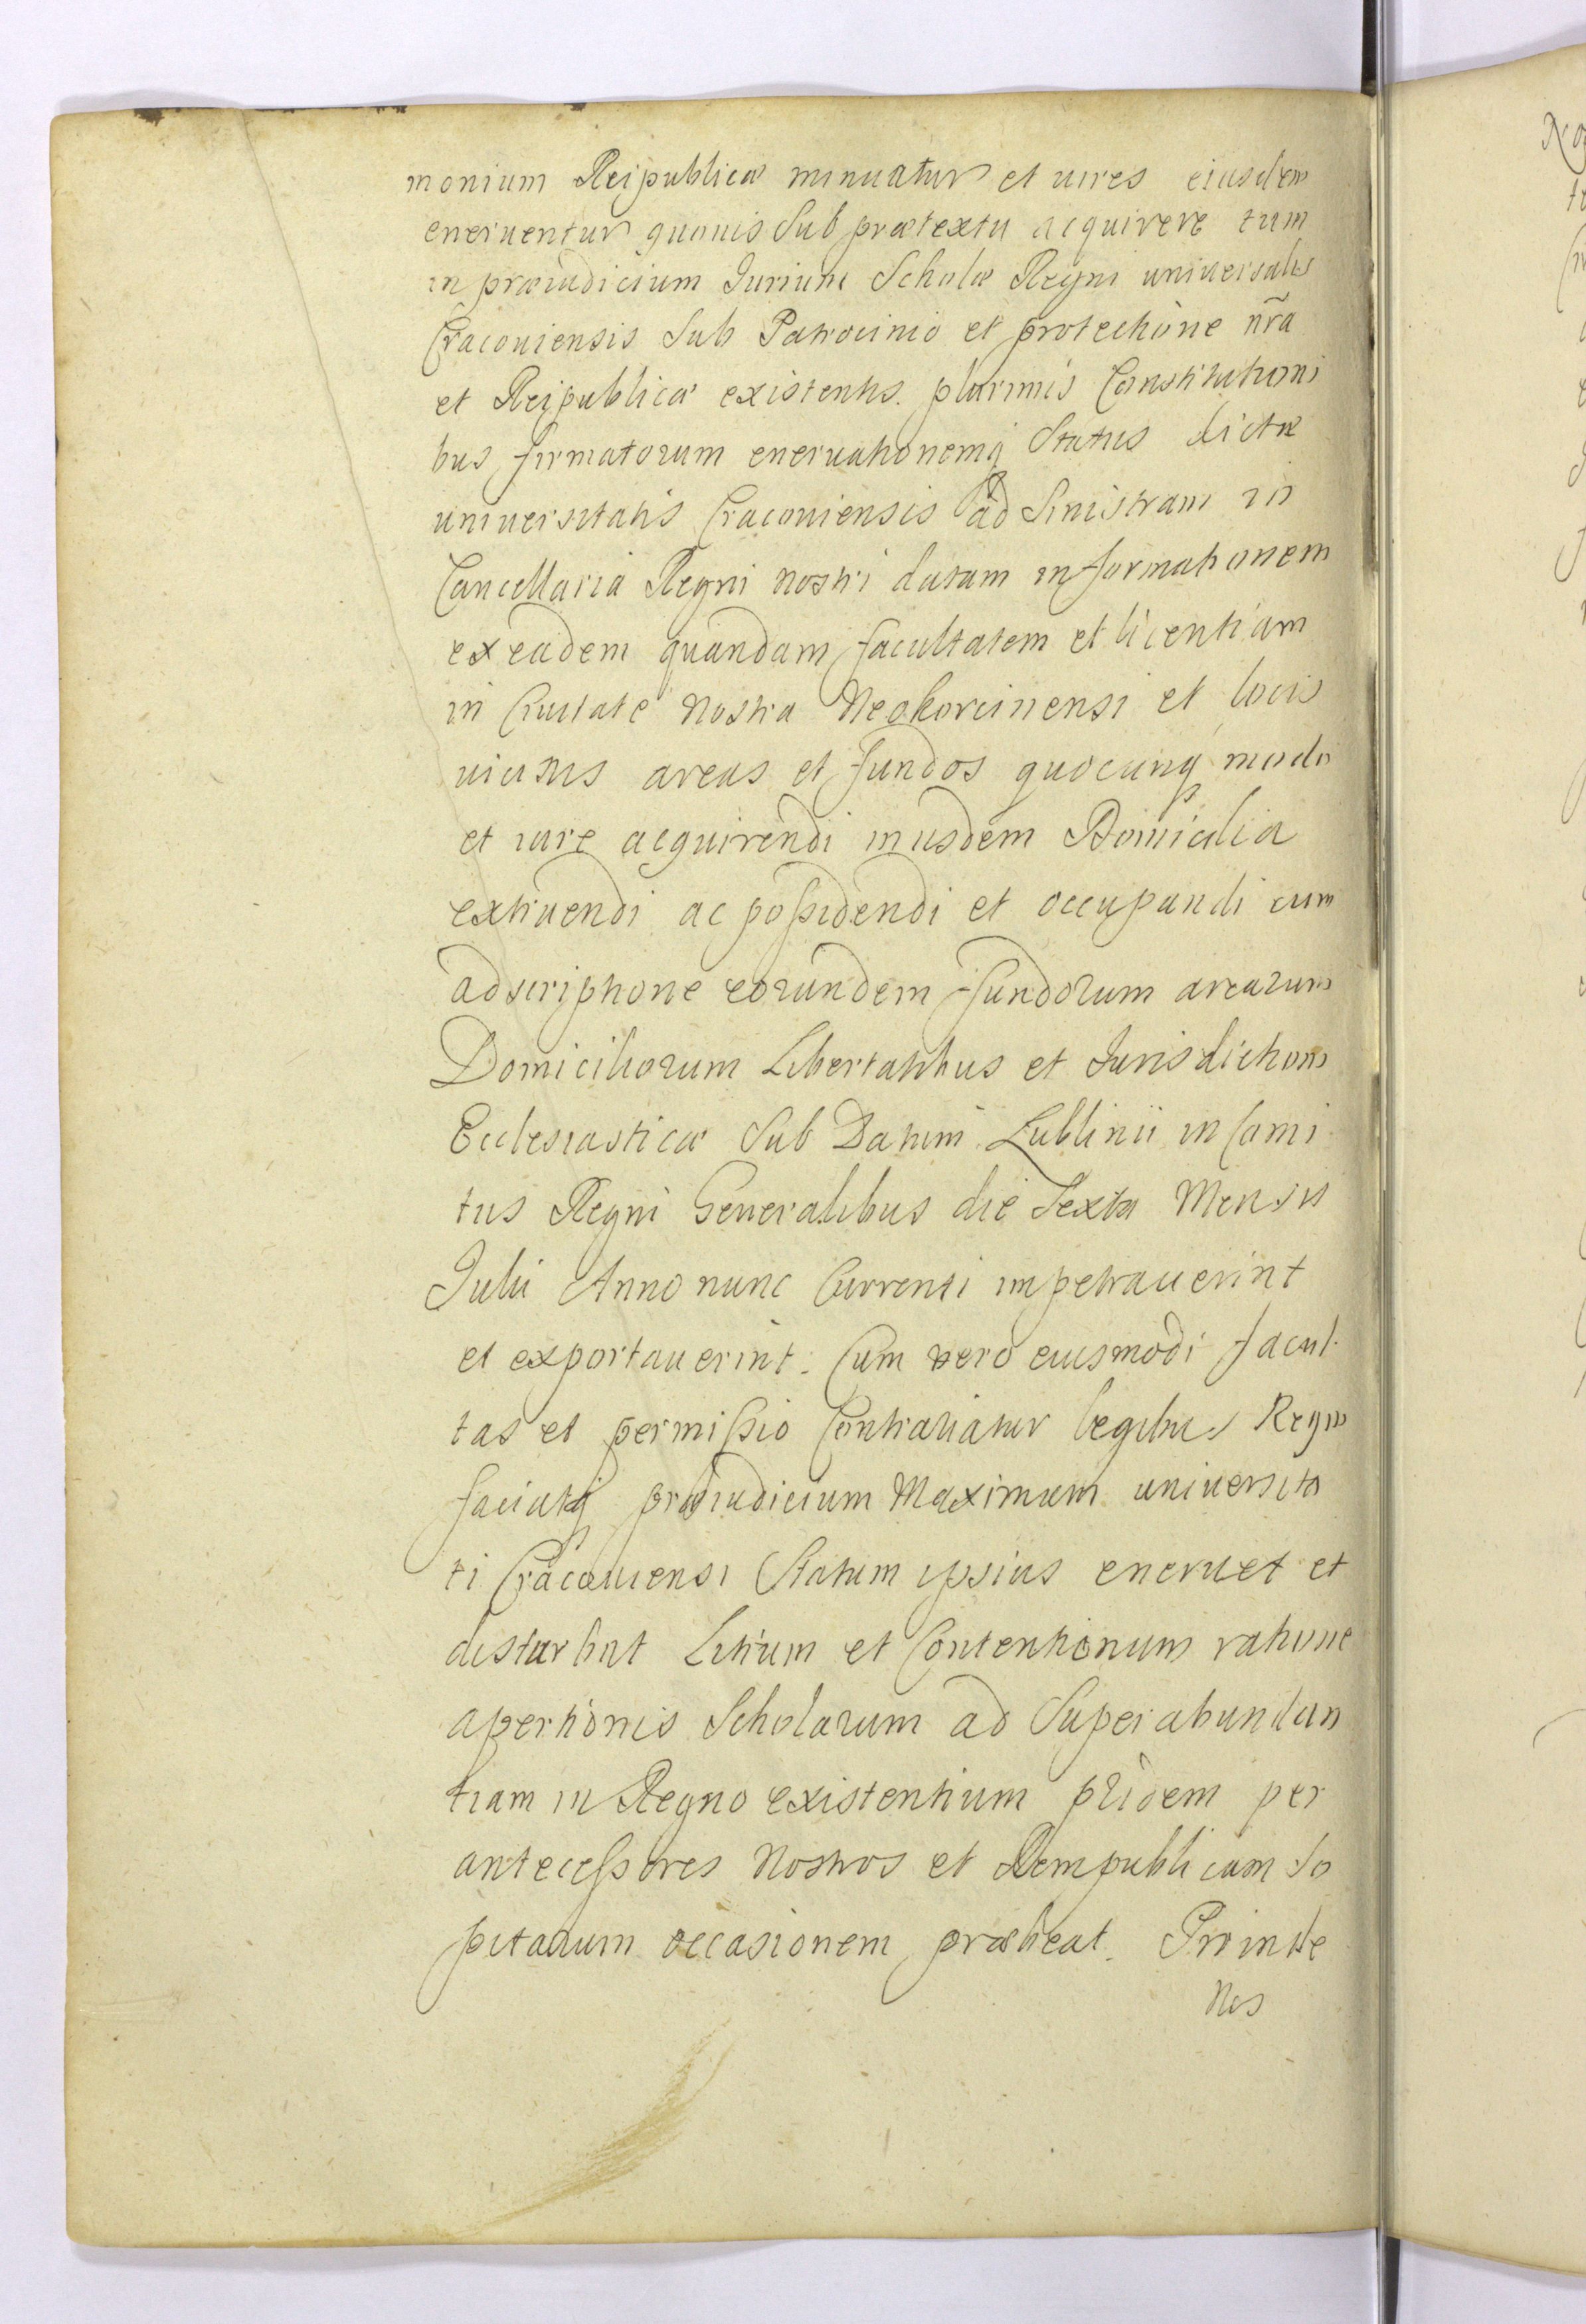 monium Reipublicæ minuatur et uires eiusdem
eneruentur quouis Sub prætextu acquirere tum
in præiudicium Jurium Scholæ Regni uniuersalis
Cracouiensis Sub Patrocinio et protectione nr̃a
et Reipublicæ existentis. plurimis Constitutioni
bus firmatorum eneruationemq Status dictæ
uniuersitatis Cracouiensis ad Sinistram in
Cancellaria Regni nostri datam informationem
ex eadem quandam facultatem et licentiam
in Ciuitate nostra Neokorcinensi et locis
uicinis areas et fundos quocunq modo
et iure acquirendi in iisdem Domicilia
extruendi ac possidendi et occupandi cum
adscriptione eorundem fundorum arearum
Domiciliorum Libertatibus et Jurisdictioni
Ecclesiasticæ Sub Datum Lublinii in Comi
tiis Regni Generalibus die Sexta Mensis
Julii Anno nunc Currenti impetrauerint
et exportauerint. Cum vero eiusmodi facul
tas et permissio Contrariatur legibus Regni
faciatq præiudicium Maximum uniuersita
ti Cracouiensi Statum ipsius eneruet et
disturbat Litium et Contentionum ratione
apertionis Scholarum ad Superabundan
tiam in Regno existentium pridem per
antecessores Nostros et Rempublicam So
pitarum occasionem præbeat. Proinde
Nos